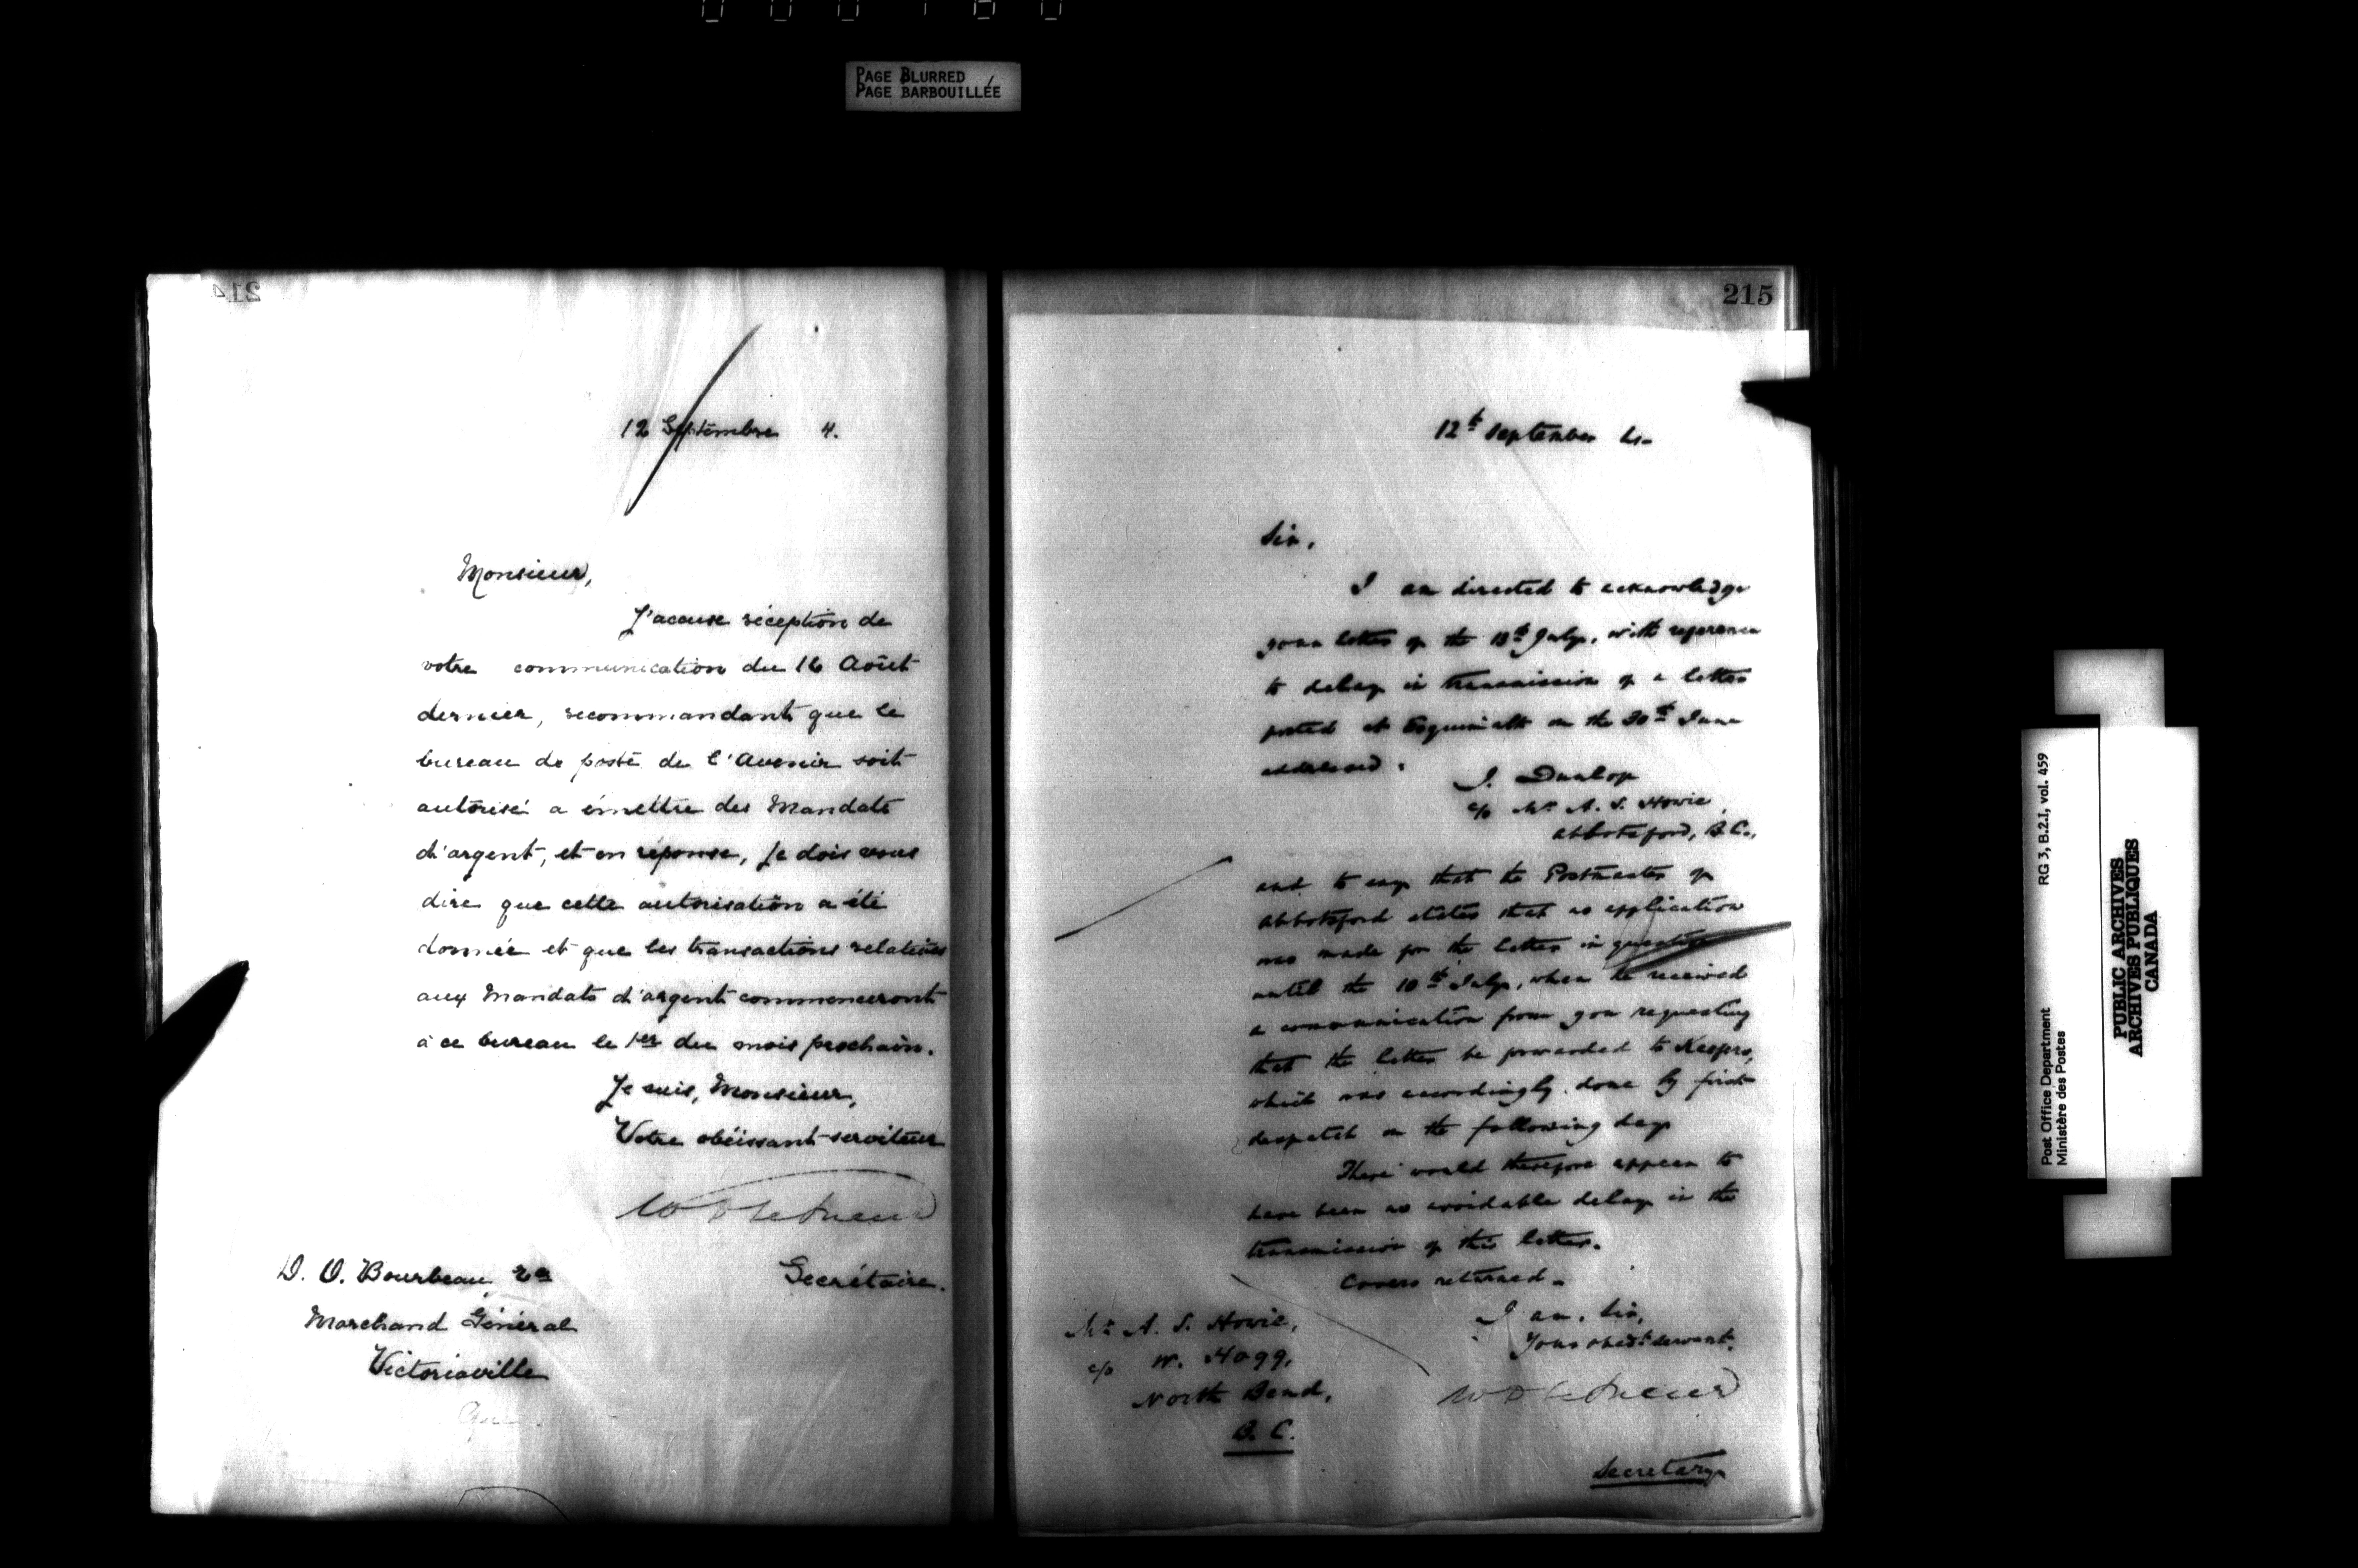 PAGE BLURRED
PAGE BARBOUILLÉE
214
12 Septembre 4.
Monsieur,
J'accuse réception de
votre communication du 16 Août
dernier, recommandant que le
bureau de poste de l'Avenir soit
autorisé a émettre des Mandats
d'argent, et en réponse, je dois vous
dire que cette autorisation a été
donnée et que les transactions relatives
aux Mandats d'argent commenceront
à ce bureau le 1er du mois prochain.
Je suis, Monsieur,
Votre obéissant serviteur
W D LeSueur
Secrétaire.
D. O. Bourbeau
Marchand Général
Victoriaville
Que.
215
12th September 4-
Sir,
I am directed to acknowledge
your letter of the 13th July, with reference
to delay in transmission of a letter
posted at Esquimalt on the 30th June
addressed:
J. Dunlop
c/o Mr A. S. Howie,
Abbotsford, B.C.,
and to say that the Postmaster of
Abbotsford states that no application
was made for the letter in question
until the 10th July, when he received
a communication from you requesting
that the letter be forwarded to Keefers,
which was accordingly done by first
despatch on the following day
There would therefore appear to
have been no avoidable delay in the
transmission of this letter.
Covers returned-
I am, Sir,
Your obedt servant,
W D LeSueur
Secretary
Mr A. S. Howie,
c/o W. Hogg,
North Bend,
B. C.
Post Office Department RG 3, B.2.I, vol. 459
Ministère des Postes
PUBLIC ARCHIVES
ARCHIVES PUBLIQUES
CANADA